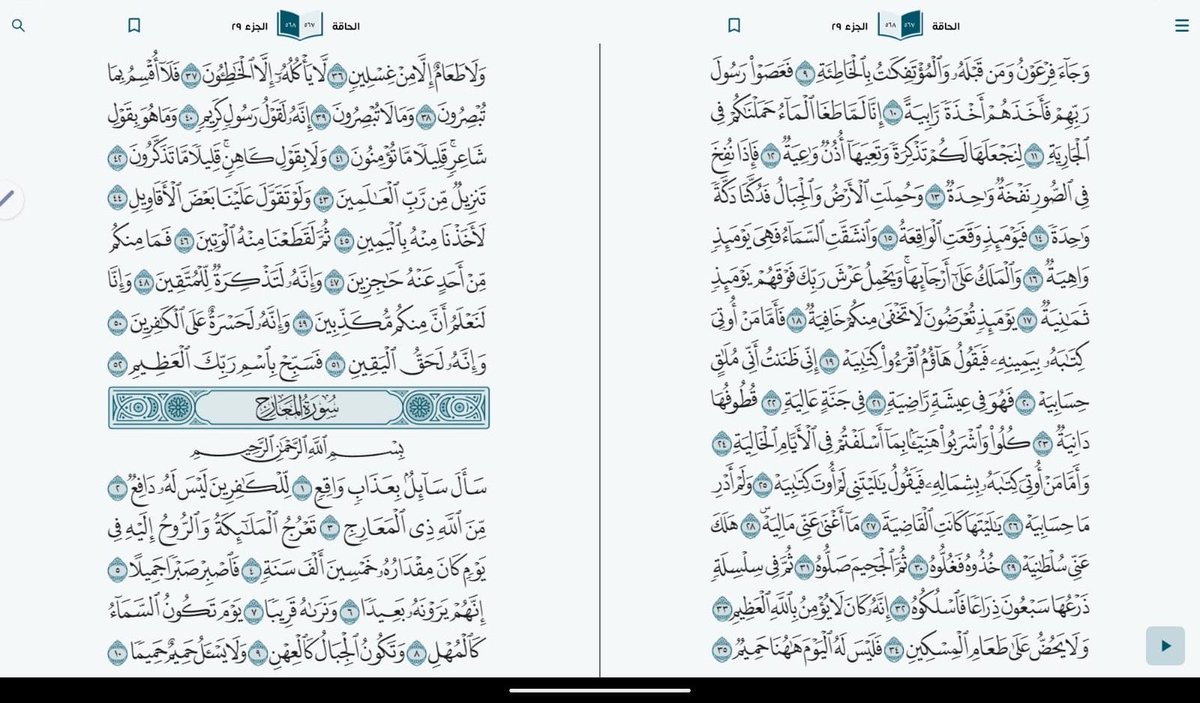 الحاقة ٥٦٧ ٥٦٨ الجزء ٢٩
وَجَآءَ فِرۡعَوۡنُ وَمَن قَبۡلَهُۥ وَٱلۡمُؤۡتَفِكَٰتُ بِٱلۡخَاطِئَةِ ٩ فَعَصَوۡاْ رَسُولَ
رَبِّهِمۡ فَأَخَذَهُمۡ أَخۡذَةٗ رَّابِيَةً ١٠ إِنَّا لَمَّا طَغَا ٱلۡمَآءُ حَمَلۡنَٰكُمۡ فِي
ٱلۡجَارِيَةِ ١١ لِنَجۡعَلَهَا لَكُمۡ تَذۡكِرَةٗ وَتَعِيَهَآ أُذُنٞ وَٰعِيَةٞ ١٢ فَإِذَا نُفِخَ
فِي ٱلصُّورِ نَفۡخَةٞ وَٰحِدَةٞ ١٣ وَحُمِلَتِ ٱلۡأَرۡضُ وَٱلۡجِبَالُ فَدُكَّتَا دَكَّةٗ
وَٰحِدَةٗ ١٤ فَيَوۡمَئِذٖ وَقَعَتِ ٱلۡوَاقِعَةُ ١٥ وَٱنشَقَّتِ ٱلسَّمَآءُ فَهِيَ يَوۡمَئِذٖ
وَاهِيَةٞ ١٦ وَٱلۡمَلَكُ عَلَىٰٓ أَرۡجَآئِهَاۚ وَيَحۡمِلُ عَرۡشَ رَبِّكَ فَوۡقَهُمۡ يَوۡمَئِذٖ
ثَمَٰنِيَةٞ ١٧ يَوۡمَئِذٖ تُعۡرَضُونَ لَا تَخۡفَىٰ مِنكُمۡ خَافِيَةٞ ١٨ فَأَمَّا مَنۡ أُوتِيَ
كِتَٰبَهُۥ بِيَمِينِهِۦ فَيَقُولُ هَآؤُمُ ٱقۡرَءُواْ كِتَٰبِيَهۡ ١٩ إِنِّي ظَنَنتُ أَنِّي مُلَٰقٍ
حِسَابِيَهۡ ٢٠ فَهُوَ فِي عِيشَةٖ رَّاضِيَةٖ ٢١ فِي جَنَّةٍ عَالِيَةٖ ٢٢ قُطُوفُهَا
دَانِيَةٞ ٢٣ كُلُواْ وَٱشۡرَبُواْ هَنِيٓـَٔۢا بِمَآ أَسۡلَفۡتُمۡ فِي ٱلۡأَيَّامِ ٱلۡخَالِيَةِ ٢٤
وَأَمَّا مَنۡ أُوتِيَ كِتَٰبَهُۥ بِشِمَالِهِۦ فَيَقُولُ يَٰلَيۡتَنِي لَمۡ أُوتَ كِتَٰبِيَهۡ ٢٥ وَلَمۡ أَدۡرِ
مَا حِسَابِيَهۡ ٢٦ يَٰلَيۡتَهَا كَانَتِ ٱلۡقَاضِيَةَ ٢٧ مَآ أَغۡنَىٰ عَنِّي مَالِيَهۡۜ ٢٨ هَلَكَ
عَنِّي سُلۡطَٰنِيَهۡ ٢٩ خُذُوهُ فَغُلُّوهُ ٣٠ ثُمَّ ٱلۡجَحِيمَ صَلُّوهُ ٣١ ثُمَّ فِي سِلۡسِلَةٖ
ذَرۡعُهَا سَبۡعُونَ ذِرَاعٗا فَٱسۡلُكُوهُ ٣٢ إِنَّهُۥ كَانَ لَا يُؤۡمِنُ بِٱللَّهِ ٱلۡعَظِيمِ ٣٣
وَلَا يَحُضُّ عَلَىٰ طَعَامِ ٱلۡمِسۡكِينِ ٣٤ فَلَيۡسَ لَهُ ٱلۡيَوۡمَ هَٰهُنَا حَمِيمٞ ٣٥
الحاقة ٥٦٧ ٥٦٨ الجزء ٢٩
وَلَا طَعَامٌ إِلَّا مِنۡ غِسۡلِينٖ ٣٦ لَّا يَأۡكُلُهُۥٓ إِلَّا ٱلۡخَٰطِـُٔونَ ٣٧ فَلَآ أُقۡسِمُ بِمَا
تُبۡصِرُونَ ٣٨ وَمَا لَا تُبۡصِرُونَ ٣٩ إِنَّهُۥ لَقَوۡلُ رَسُولٖ كَرِيمٖ ٤٠ وَمَا هُوَ بِقَوۡلِ
شَاعِرٖۚ قَلِيلٗا مَّا تُؤۡمِنُونَ ٤١ وَلَا بِقَوۡلِ كَاهِنٖۚ قَلِيلٗا مَّا تَذَكَّرُونَ ٤٢
تَنزِيلٞ مِّن رَّبِّ ٱلۡعَٰلَمِينَ ٤٣ وَلَوۡ تَقَوَّلَ عَلَيۡنَا بَعۡضَ ٱلۡأَقَاوِيلِ ٤٤
لَأَخَذۡنَا مِنۡهُ بِٱلۡيَمِينِ ٤٥ ثُمَّ لَقَطَعۡنَا مِنۡهُ ٱلۡوَتِينَ ٤٦ فَمَا مِنكُم
مِّنۡ أَحَدٍ عَنۡهُ حَٰجِزِينَ ٤٧ وَإِنَّهُۥ لَتَذۡكِرَةٞ لِّلۡمُتَّقِينَ ٤٨ وَإِنَّا
لَنَعۡلَمُ أَنَّ مِنكُم مُّكَذِّبِينَ ٤٩ وَإِنَّهُۥ لَحَسۡرَةٌ عَلَى ٱلۡكَٰفِرِينَ ٥٠
وَإِنَّهُۥ لَحَقُّ ٱلۡيَقِينِ ٥١ فَسَبِّحۡ بِٱسۡمِ رَبِّكَ ٱلۡعَظِيمِ ٥٢
سُورَةُ المَعَارِجِ
بِسۡمِ ٱللَّهِ ٱلرَّحۡمَٰنِ ٱلرَّحِيمِ
سَأَلَ سَآئِلُۢ بِعَذَابٖ وَاقِعٖ ١ لِّلۡكَٰفِرِينَ لَيۡسَ لَهُۥ دَافِعٞ ٢
مِّنَ ٱللَّهِ ذِي ٱلۡمَعَارِجِ ٣ تَعۡرُجُ ٱلۡمَلَٰٓئِكَةُ وَٱلرُّوحُ إِلَيۡهِ فِي
يَوۡمٖ كَانَ مِقۡدَارُهُۥ خَمۡسِينَ أَلۡفَ سَنَةٖ ٤ فَٱصۡبِرۡ صَبۡرٗا جَمِيلًا ٥
إِنَّهُمۡ يَرَوۡنَهُۥ بَعِيدٗا ٦ وَنَرَىٰهُ قَرِيبٗا ٧ يَوۡمَ تَكُونُ ٱلسَّمَآءُ
كَٱلۡمُهۡلِ ٨ وَتَكُونُ ٱلۡجِبَالُ كَٱلۡعِهۡنِ ٩ وَلَا يَسۡـَٔلُ حَمِيمٌ حَمِيمٗا ١٠